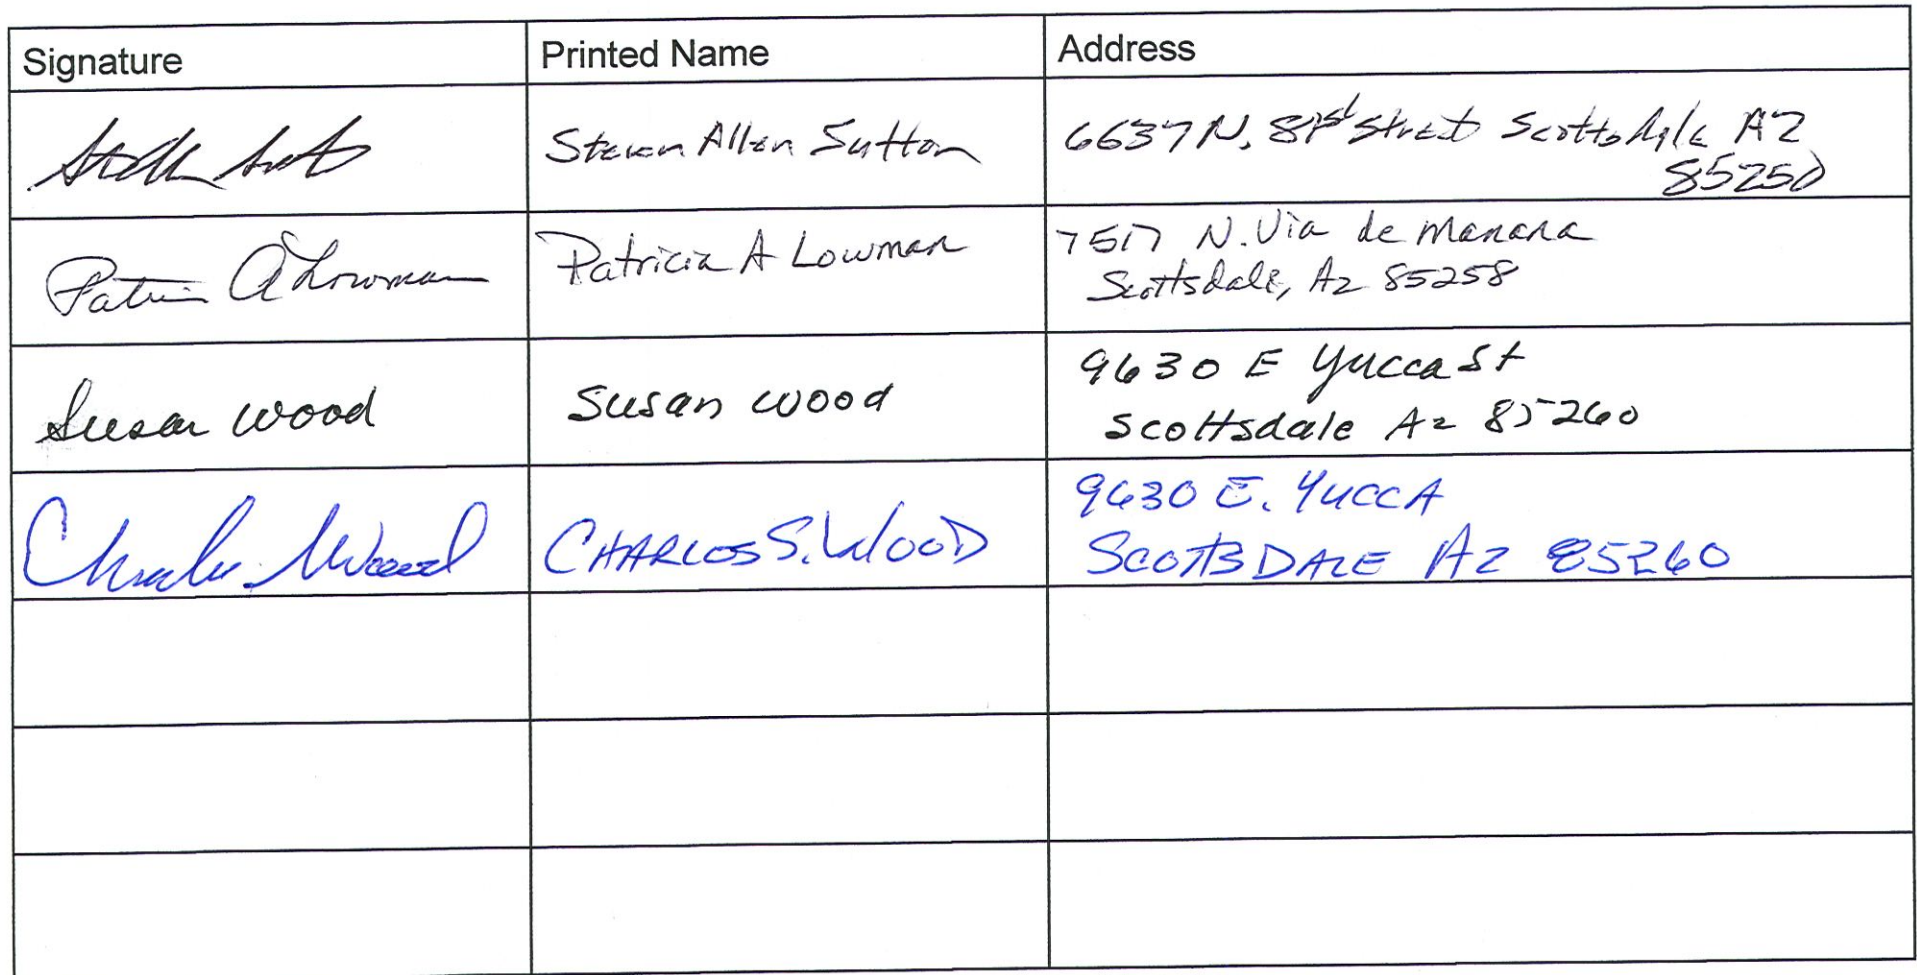 Signature Printed Name Address
Steven Allen Sutton 6637 N. 81st Street Scottsdale AZ
85250
Patricia A Lowman Patricia A Lowman 7517 N. Via de Manana
Scottsdale, Az 85258
Susan Wood Susan Wood 9630 E Yucca St
Scottsdale Az 85260
Charles Wood CHARLES S. WOOD 9630 E. YUCCA
SCOTTSDALE AZ 85260